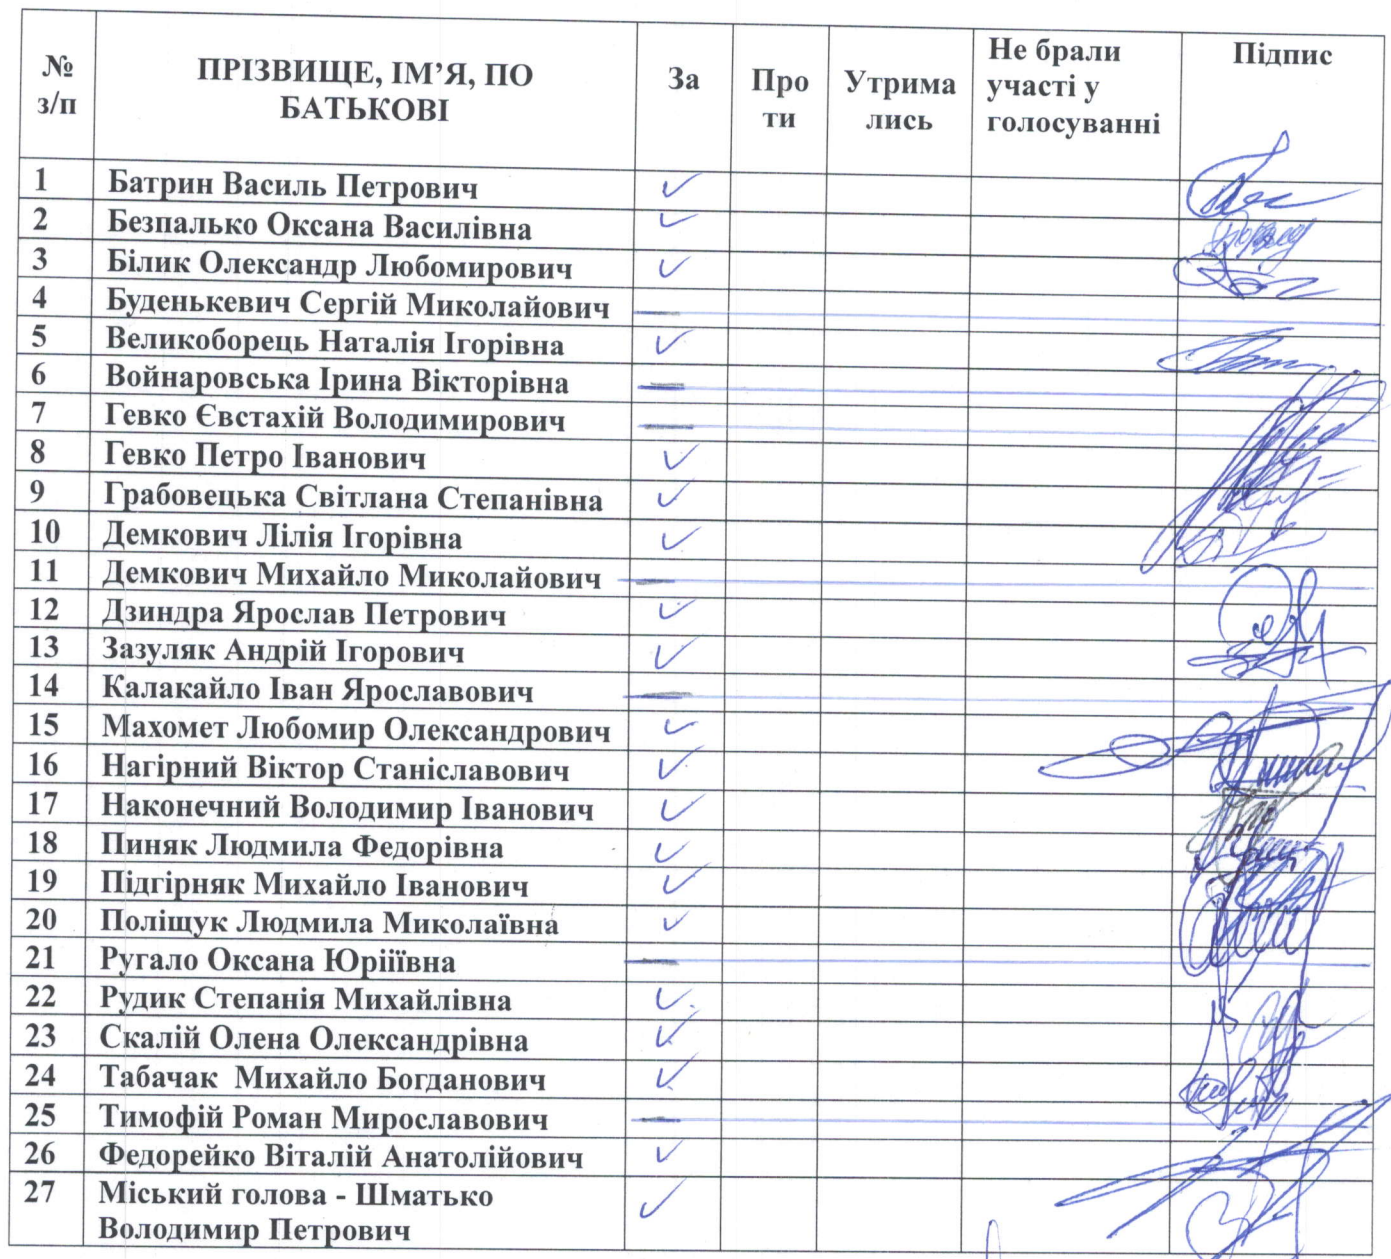 № з/п ПРІЗВИЩЕ, ІМ’Я, ПО БАТЬКОВІ За Про ти Утрима лись Не брали участі у голосуванні Підпис
1 Батрин Василь Петрович ✓
2 Безпалько Оксана Василівна ✓
3 Білик Олександр Любомирович ✓
4 Буденькевич Сергій Миколайович —
5 Великоборець Наталія Ігорівна ✓
6 Войнаровська Ірина Вікторівна —
7 Гевко Євстахій Володимирович —
8 Гевко Петро Іванович ✓
9 Грабовецька Світлана Степанівна ✓
10 Демкович Лілія Ігорівна ✓
11 Демкович Михайло Миколайович —
12 Дзиндра Ярослав Петрович ✓
13 Зазуляк Андрій Ігорович ✓
14 Калакайло Іван Ярославович —
15 Махомет Любомир Олександрович ✓
16 Нагірний Віктор Станіславович ✓
17 Наконечний Володимир Іванович ✓
18 Пиняк Людмила Федорівна ✓
19 Підгірняк Михайло Іванович ✓
20 Поліщук Людмила Миколаївна ✓
21 Ругало Оксана Юріїївна —
22 Рудик Степанія Михайлівна ✓
23 Скалій Олена Олександрівна ✓
24 Табачак Михайло Богданович ✓
25 Тимофій Роман Мирославович —
26 Федорейко Віталій Анатолійович ✓
27 Міський голова - Шматько
Володимир Петрович ✓